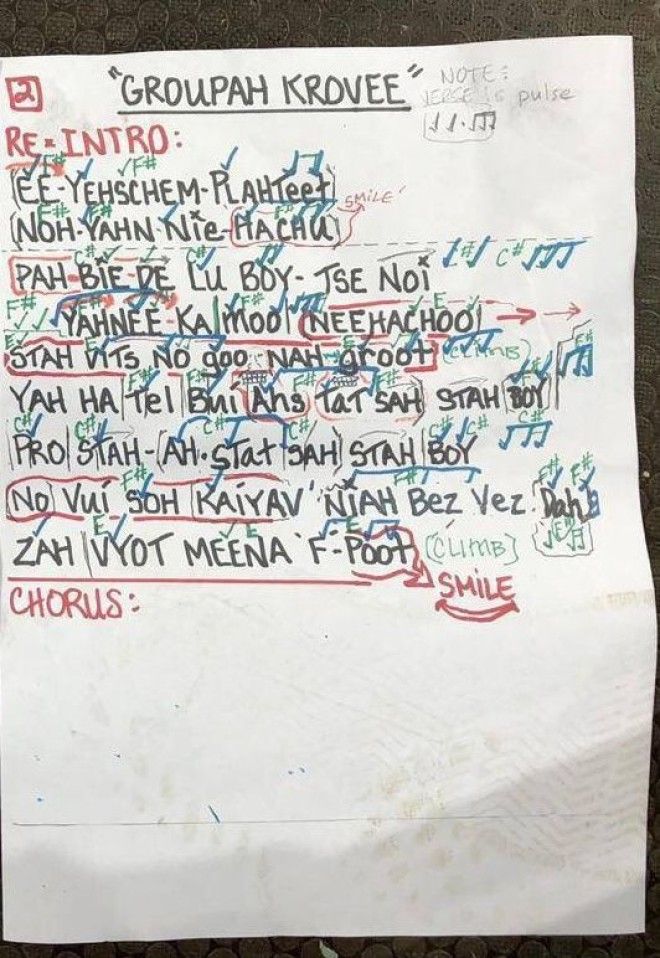 2 "GROUPAH KROVEE" NOTE:
VERSE is pulse
RE-INTRO:
F# F#
(EE-YEHSCHEM-PLAHTeet)
F# F# F# SMILE
(NOH-YAHN Nie-HACHU)
C# C# C# C#
PAH-BIE-DE LU BOY-TSE NOI
F# F# E
YAHNEE-KA|MOO|(NEEHACHOO|
E
STAH VITS NO goo NAH groot (CLIMB) F#
F# F# F#
YAH HA|Tel|Bui|Ahs|TaT SAH STAH BOY
C# C# C# C# C# C# C#
|PRO|STAH-(AH-STat|SAH)|STAH|BOY
F# F# F#
(No) Vui SOH |KAIYAV 'NIAH Bez Vez Dah
E E E E
ZAH |VYOT MEENA 'F-Poot (CLIMB)
SMILE
CHORUS: